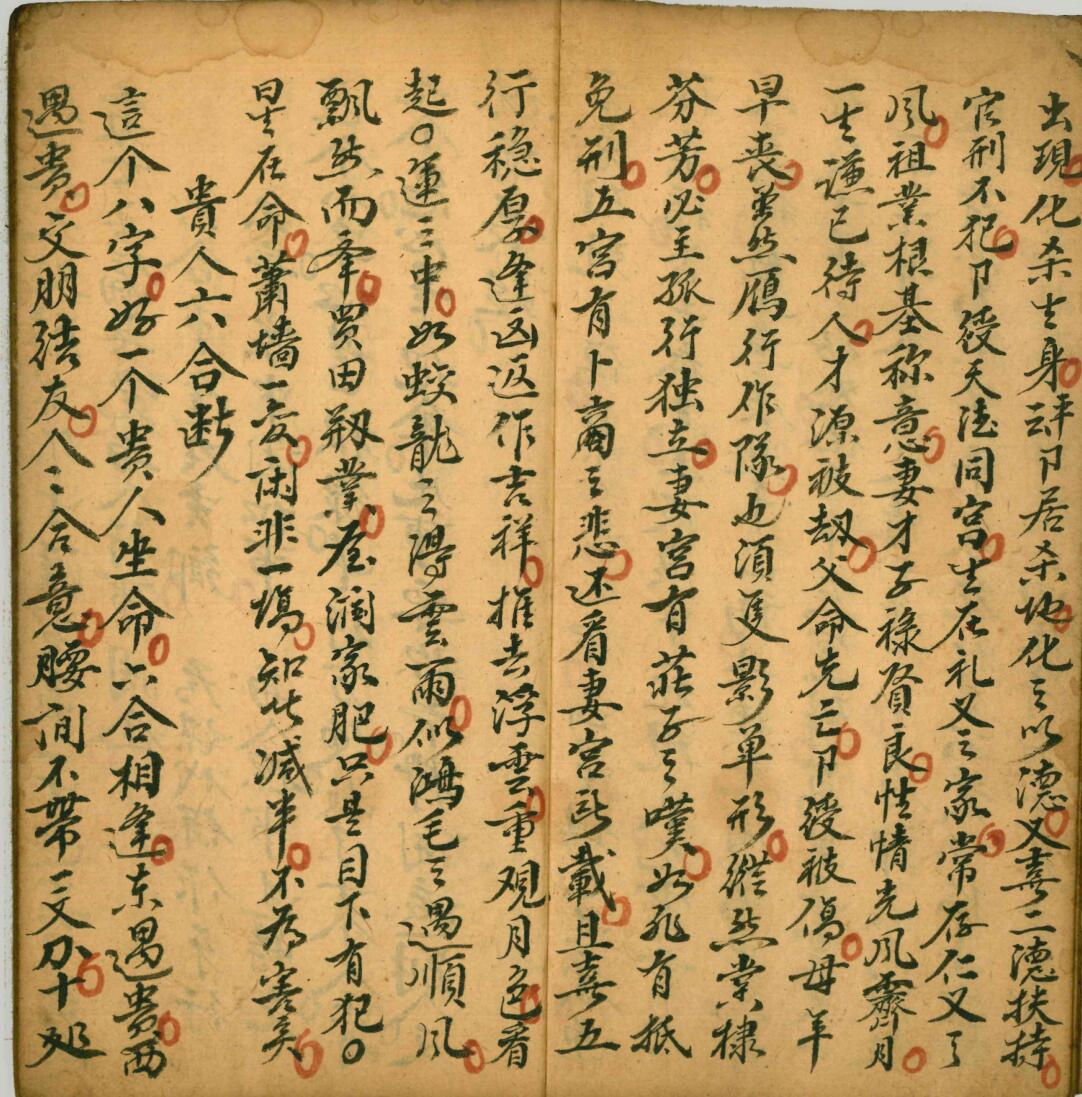 出現化杀生身詳卩居杀地化之以德又喜二德扶持
官刑不犯卩後天德同宮生在礼义之家常存仁义了
风祖業根基称意妻才子祿賢良性情光风霽月
一生谦已待人才源被劫父命先亡卩後被傷母年
早喪虽然鴈行作隊也須隻影单形縱然棠棣
芬芳必主孤行独立妻宮有莊子之嘆如非有抵
免刑五宮有卜商之悲还看妻宮所載且喜五
行稳厚逢凶返作吉祥推去浮雲重观月色看
起運之中如蛟龍之得雲雨似鴻毛之遇順风
飄然而举買田剏業屋润家肥只是目下有犯
星在命蕭墻一变闹非一塲知此减半不為害矣
貴人六合断
這个八字好一个貴人坐命六合相逢东遇貴西
遇貴交朋结友人〻合意腰间不帶一文力十处